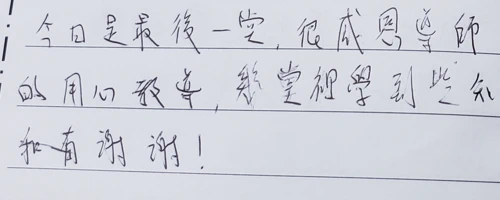 今日是最後一堂,很感恩導師
的用心教導,課堂裡學到些知
和有謝謝!